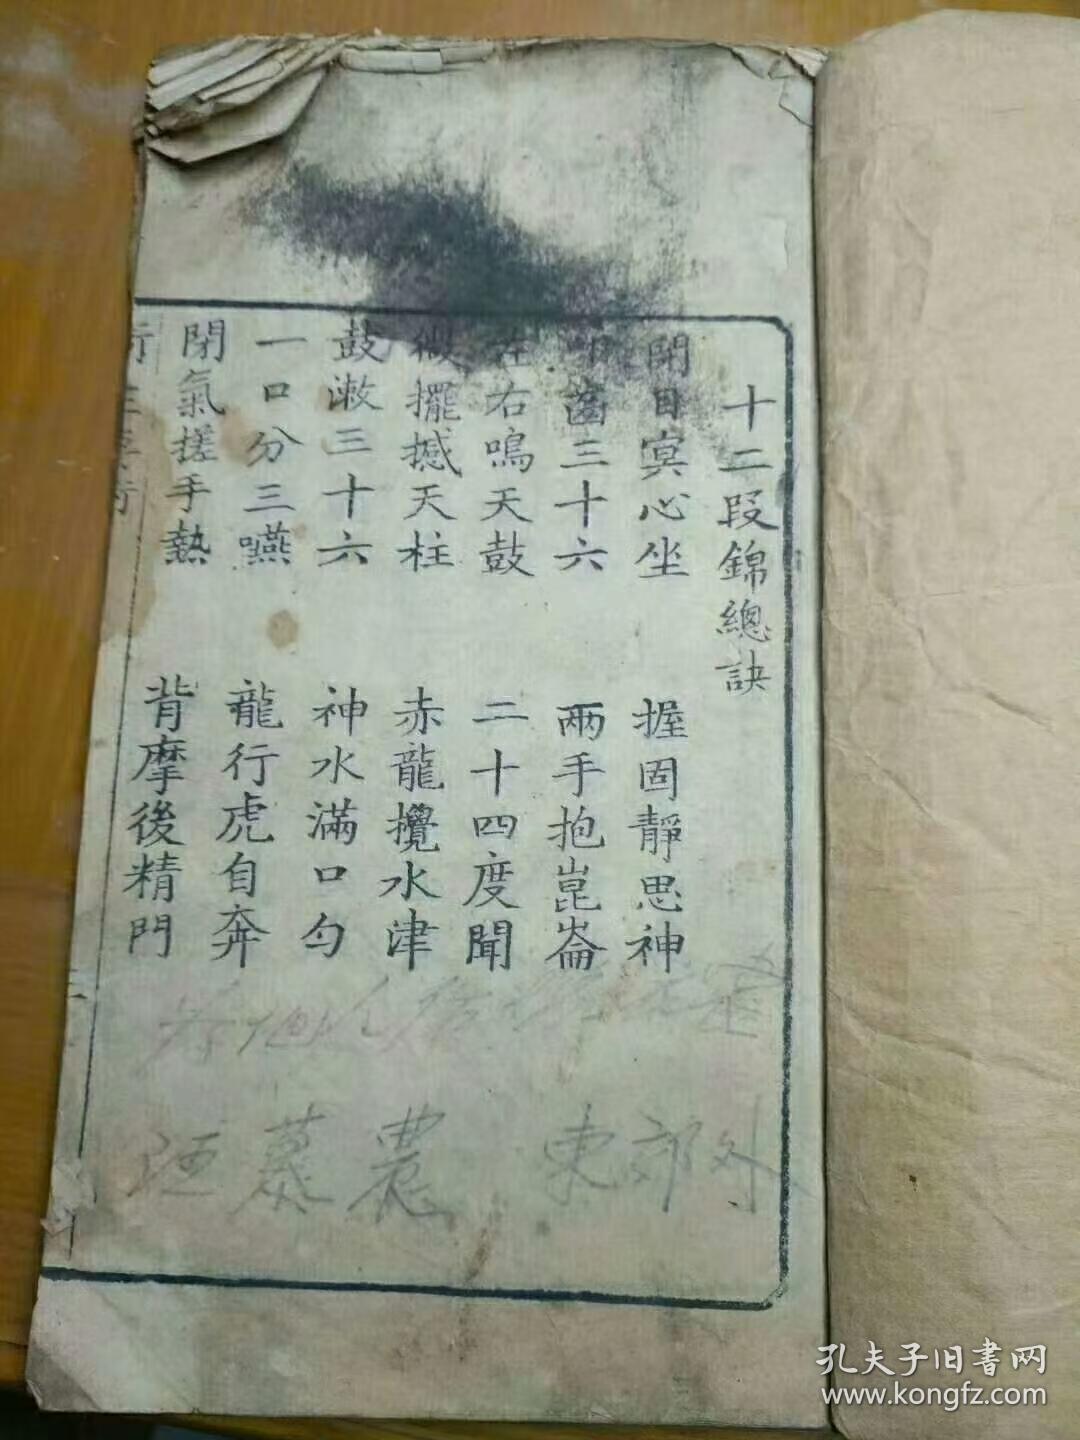 十二段錦總訣
閉目冥心坐 握固靜思神
叩齒三十六 兩手抱崑崙
左右鳴天鼓 二十四度聞
微擺撼天柱 赤龍攪水津
鼓漱三十六 神水滿口勻
一口分三嚥 龍行虎自奔
閉氣搓手熱 背摩後精門
東郊外
慕農
孔夫子旧書网
www.kongfz.com